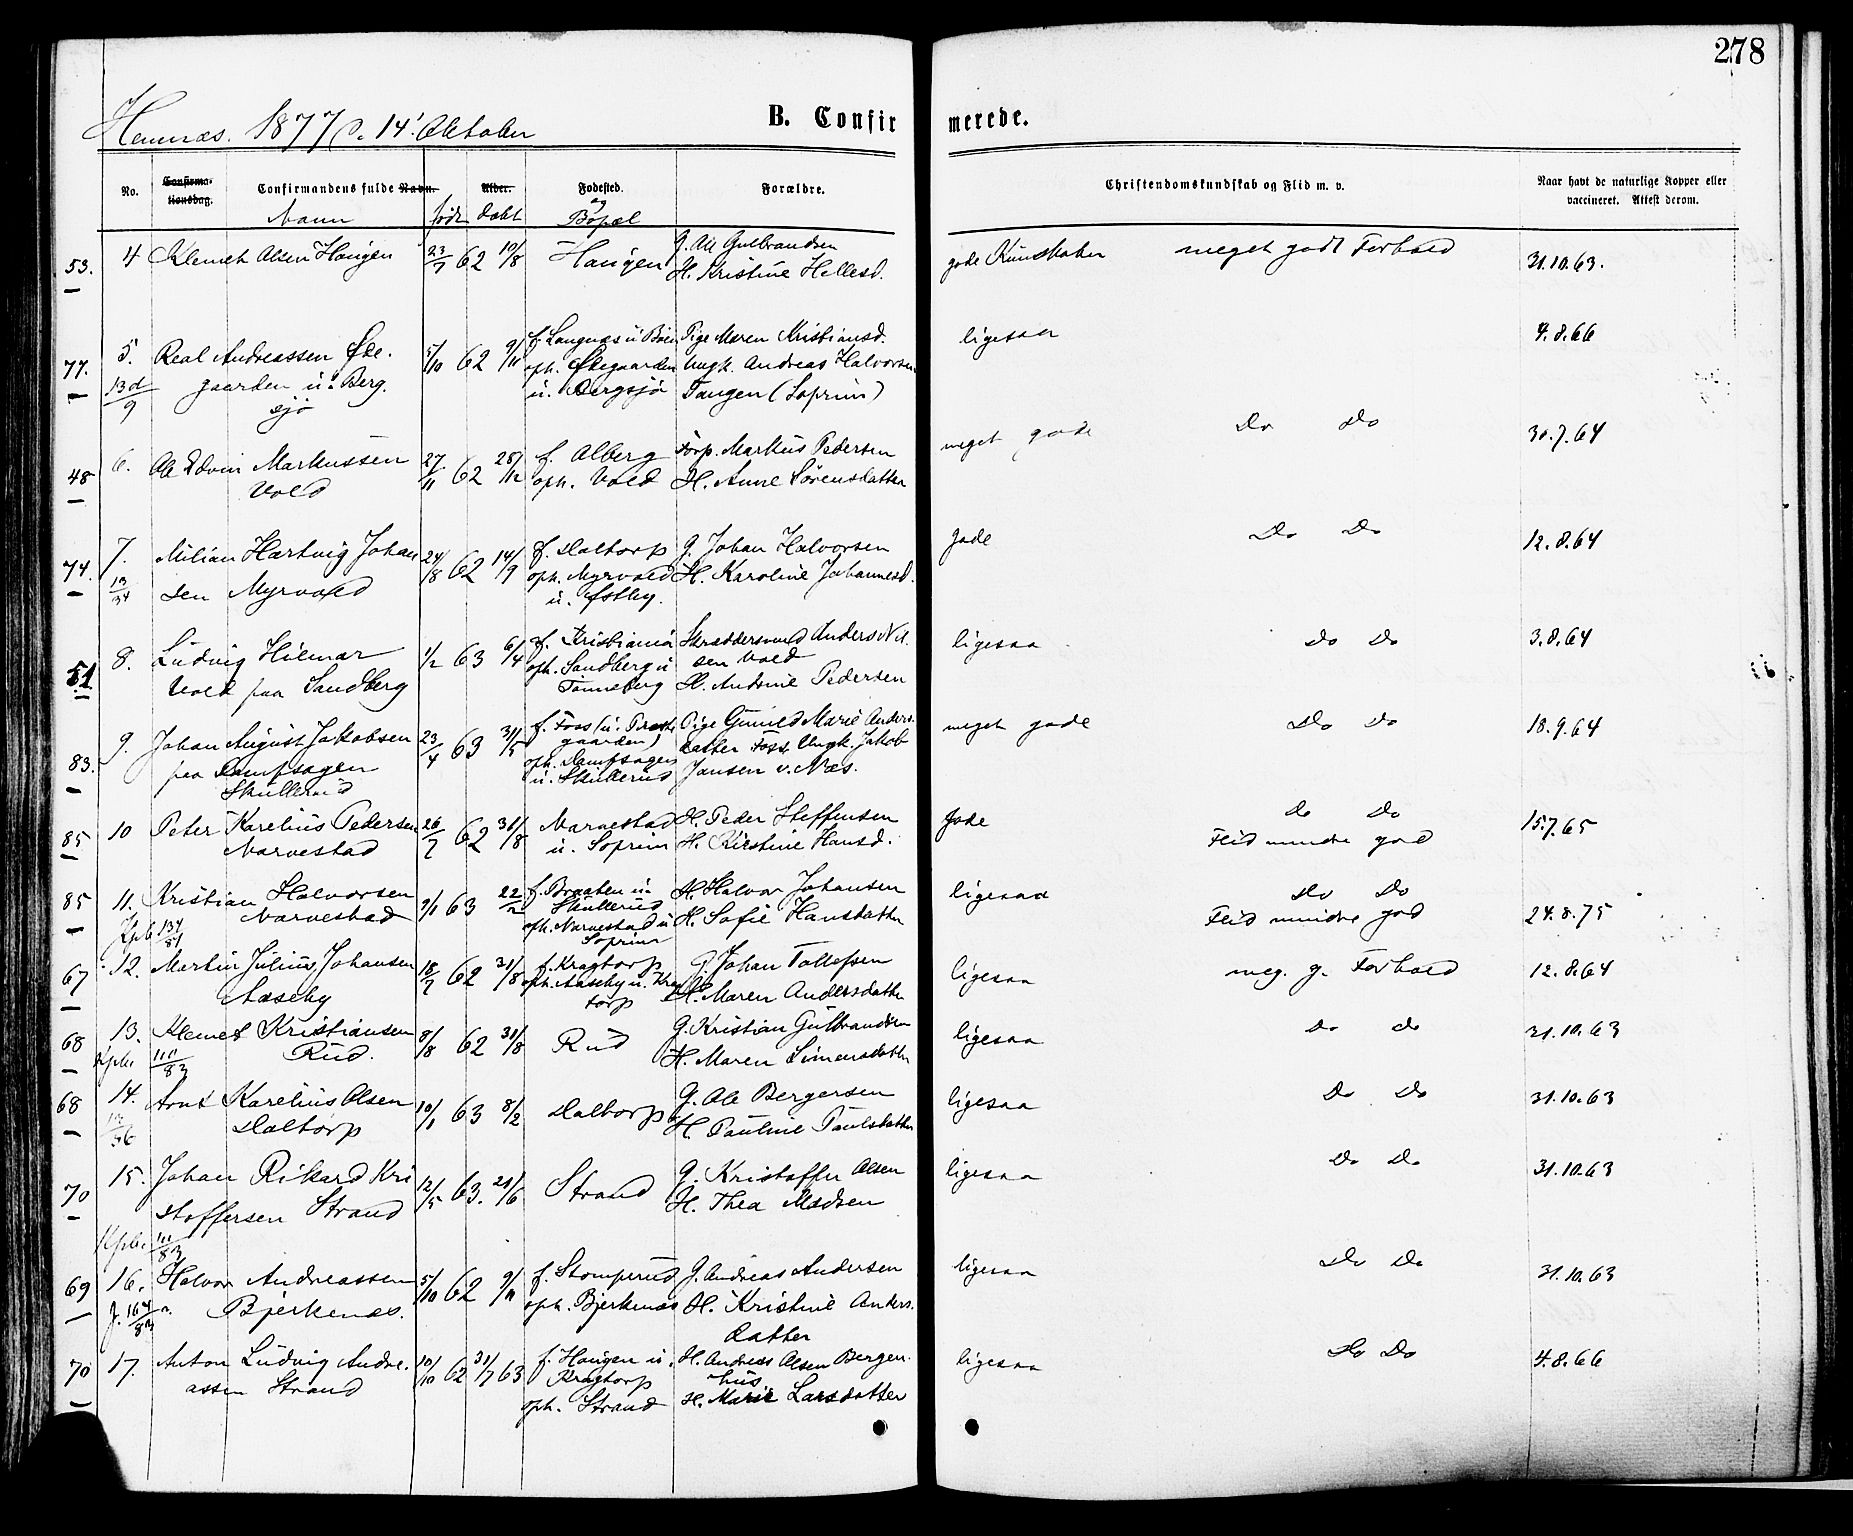 278
Hemnæs. 1877 d. 14' Oktober
B. Confirmerede.
No. Confirmationsdag. Confirmandens fulde Navn. Alder. Fødested. Forældre. Christendomskundskab og Flid m. v. Naar havt de naturlige Kopper eller
vaccineret. Attest derom.
Navn født døbt og Bopæl
53. 4 Klemet Olsen Haugen 23/7 62 10/8 Haugen G. Ole Gulbrandsen gode Kundskaber meget godt Forhold 31.10.63.
H. Kristine Hellesd.
77. 5. Real Andreassen Øde- 5/10 62 9/11 f. Langnæs u. Bøen Pige Maren Kristiansd. ligesaa 4.8.66
13d/9 gaarden u. Berg- oph. Ødegaarden Ungk. Andreas Halvorsen
sjø u. Bergsjø Tangen (Soprim)
48 6. Ole Edvin Markussen 27/11 62 28/12 f. Alberg Forp. Markus Pedersen meget gode Do Do 30.7.64
Vold oph. Vold H. Anne Sørensdatter
74. 7. Milian Hartvig Johan- 24/8 62 14/9 f. Daltorp G. Johan Halvorsen Gode Do Do 12.8.64
sen Myrvold oph. Myrvold H. Karoline Johannesd.
u. Østby.
51 8. Ludvig Hilmar 1/2 63 6/4 f. Kristiania Skræddersvend Anders Nil- ligesaa Do Do 3.8.64
Vold paa Sandberg oph. Sandberg u sen Vold
Tønneberg H. Andrine Pedersen
83. 9. Johan August Jakobsen 23/4 63 31/5 f. Foss (u. Præste- Pige Gunild Marie Anders- meget gode Do Do 18.9.64
paa Dampsagen gaarden) datter Foss. Ungk. Jakob
Skullerud oph. Dampsagen Jansen v. Næs.
u. Skullerud
85 10 Peter Karelius Pedersen 26/7 62 31/8 Narvestad H. Peder Steffensen Gode Do Do 15.7.65
Narvestad u. Soprim H. Kirstine Hansd. Flid mindre god
85 11. Kristian Halvorsen 9/1 63 22/2 f. Braaten u. H. Halvor Johansen ligesaa Do Do 24.8.75
Narvestad Skullerud H. Sofie Hansdatter Flid mindre god
134/81 oph. Narvestad u
Soprim
67 12. Martin Julius Johansen 18/7 62 31/8 f. Kragtorp G. Johan Tollefsen ligesaa meg. g. Forhold 12.8.64
Aaseby oph. Aaseby u. Krag- H. Maren Andersdatter
torp
68 13. Klemet Kristiansen 8/8 62 31/8 Rud G. Kristian Gulbrandsen ligesaa Do do 31.10.63
Rud. H. Maren Simensdatter
68 14. Arnt Karelius Olsen 10/1 63 8/2 Daltorp G. Ole Bergersen ligesaa Do Do 31.10.63
Daltorp H. Pauline Paulsdatter
70 15. Johan Rikard Kri- 12/5 63. 21/6 Strand G. Kristoffer Olsen ligesaa Do Do 31.10.63
stoffersen Strand H. Thea Madsen
69 16. Halvor Andreassen 5/10 62 9/11 f. Stomperud G. Andreas Andersen ligesaa Do Do 31.10.63
Bjerkenæs. oph. Bjerkenæs H. Kristine Anders-
datter
70 17. Anton Ludvig Andre- 10/10 62 31/7 63 f. Haugen u. H. Andreas Olsen Bergen- ligesaa Do Do 4.8.66
assen Strand Kragtorp hus
oph. Strand H. Marie Larsdatter